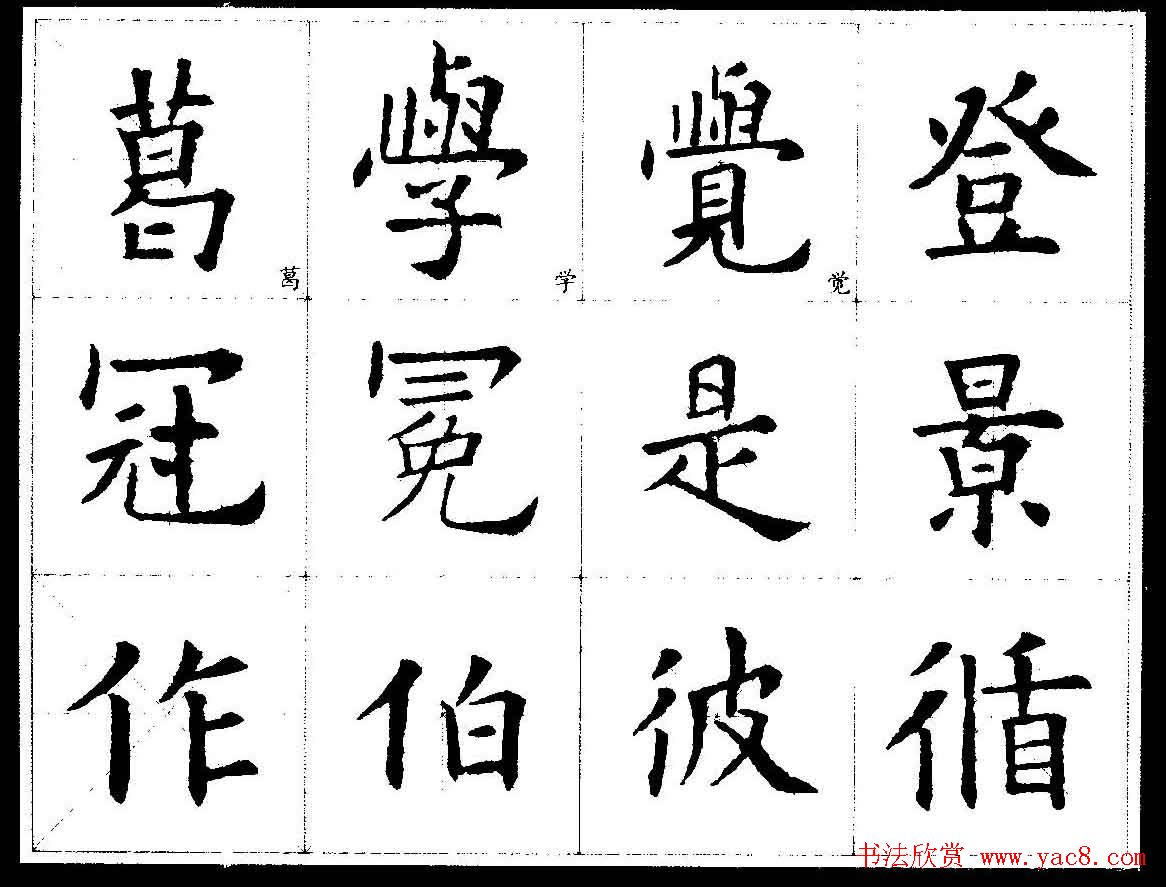 葛 學 覺 登
葛 学 觉
冠 冕 是 景
作 伯 彼 循
书法欣赏 www.yac8.com